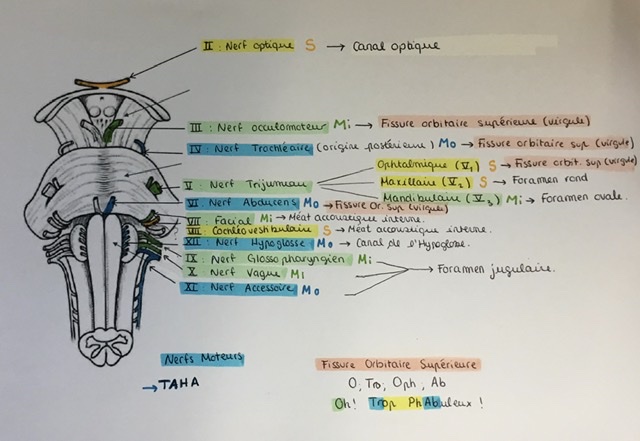 II : Nerf optique S → Canal optique
III : Nerf occulomoteur Mi → Fissure orbitaire supérieure (virgule)
IV : Nerf Trochléaire (origine postérieure) Mo → Fissure orbitaire sup (virgule)
Ophtalmique (V1) S → Fissure orbit. sup (virgule)
V : Nerf Trijumeau Maxillaire (V2) S → Foramen rond
Mandibulaire (V3) Mi → Foramen ovale.
VI : Nerf Abducens Mo → Fissure Or. sup (virgule)
VII : Facial Mi → Méat accoustique interne.
VIII : Cochléovestibulaire S → Méat accoustique interne.
XII : Nerf Hypoglosse Mo → Canal de l'Hypoglosse.
IX : Nerf Glossopharyngien Mi
X : Nerf Vague Mi → Foramen jugulaire.
XI : Nerf Accessoire Mo
Nerfs Moteurs
→ TAHA
Fissure Orbitaire Supérieure
O, Tro, Oph, Ab
Oh! Trop PhAbuleux !